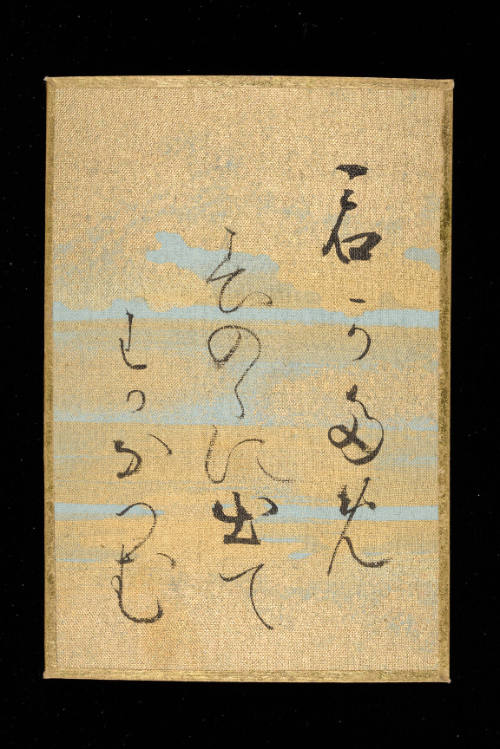 君かため
春のゝに出て
わかなつむ